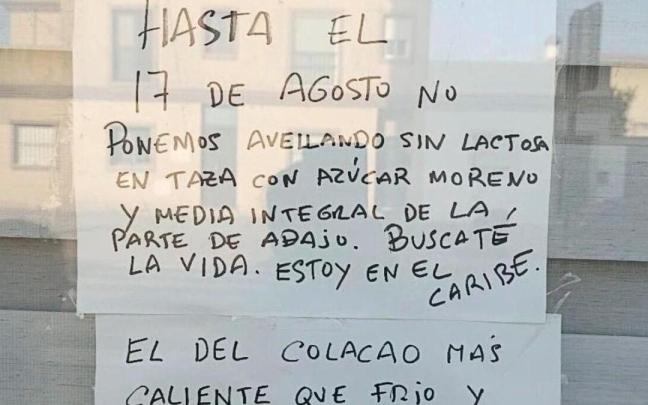 HASTA EL
17 DE AGOSTO NO
PONEMOS AVELLANDO SIN LACTOSA
EN TAZA CON AZÚCAR MORENO
Y MEDIA INTEGRAL DE LA
PARTE DE ADAJO. BUSCATÉ
LA VIDA. ESTOY EN EL
CARIBE.
EL DEL COLACAO MAS
CALIENTE QUE FRIO Y